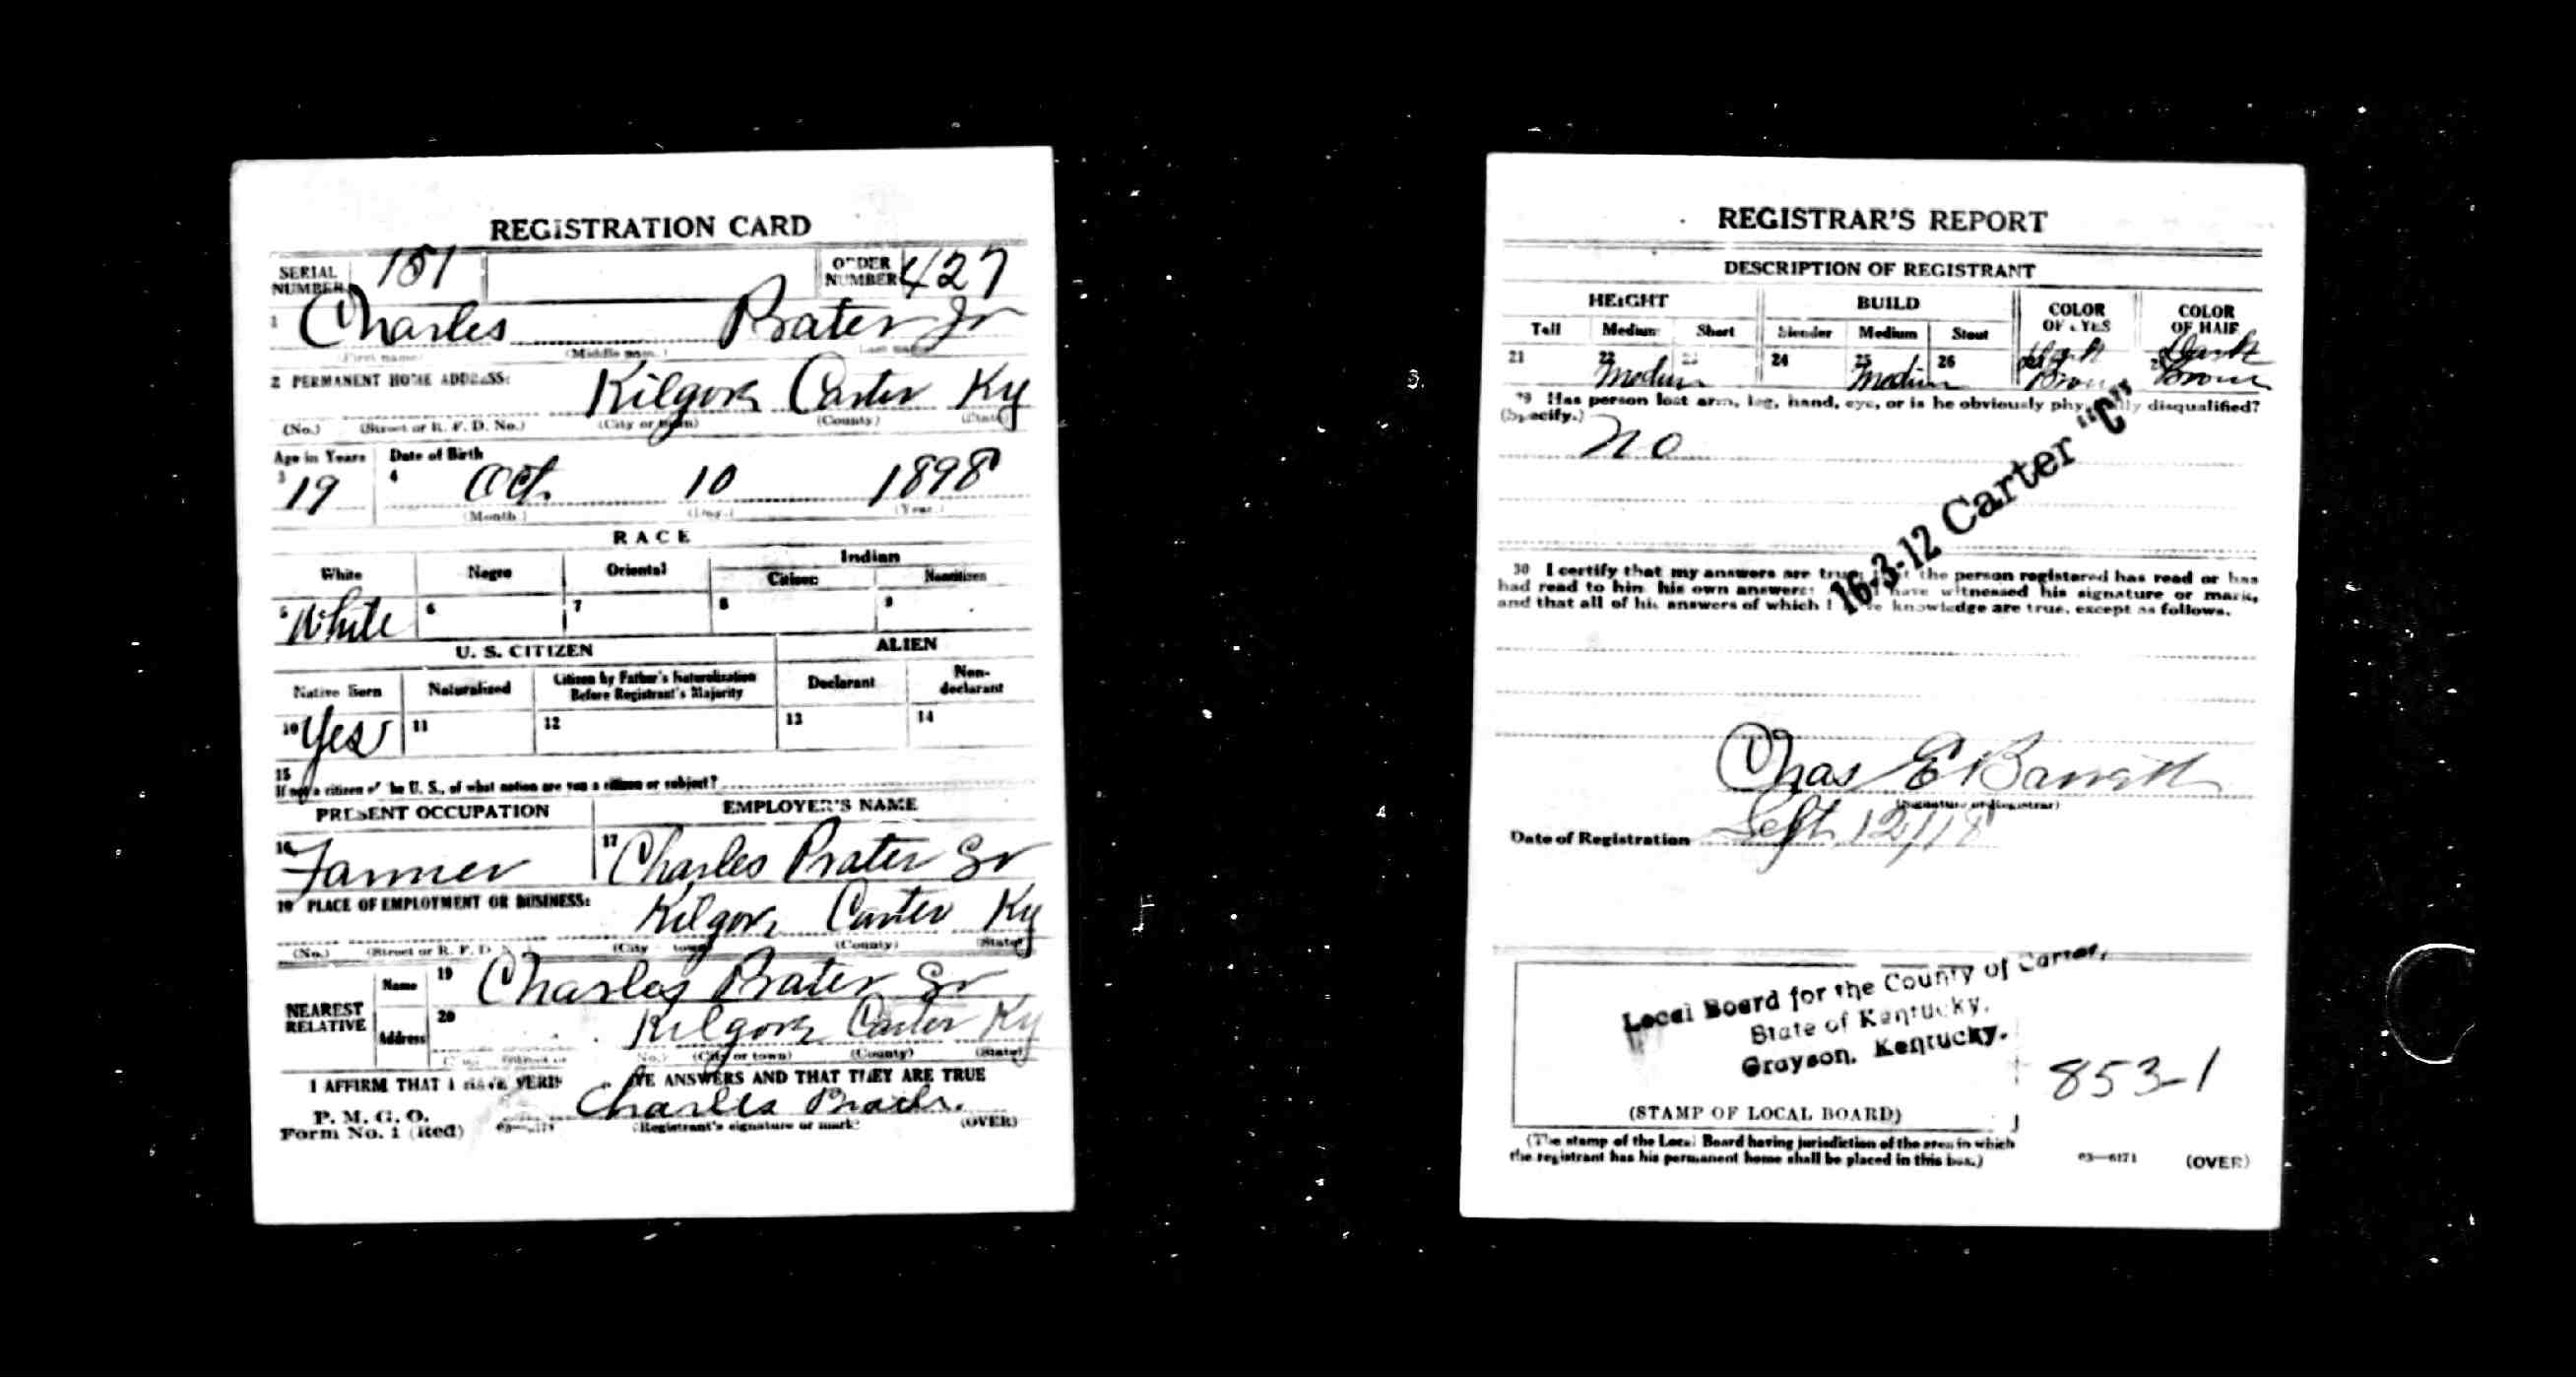 REGISTRATION CARD
SERIAL NUMBER 151 ORDER NUMBER 427
1 Charles Prater Jr
(First name) (Middle name) (Last name)
2 PERMANENT HOME ADDRESS:
Kilgore Carter Ky
(No.) (Street or R. F. D. No.) (City or town) (County) (State)
Age in Years Date of Birth
3 19 4 Oct. 10 1898
(Month.) (Day.) (Year.)
RACE
White Negro Oriental Indian
Citizen Noncitizen
5 White 6 7 8 9
U. S. CITIZEN ALIEN
Native Born Naturalized Citizen by Father's Naturalization Before Registrant's Majority Declarant Non-declarant
10 Yes 11 12 13 14
15
If not a citizen of the U. S., of what nation are you a citizen or subject?
PRESENT OCCUPATION EMPLOYER'S NAME
16 Farmer 17 Charles Prater Sr
18 PLACE OF EMPLOYMENT OR BUSINESS:
Kilgore Carter Ky
(No.) (Street or R. F. D. (City town) (County) (State)
NEAREST RELATIVE Name 19 Charles Prater Sr
Address 20 Kilgore Carter Ky
No.) (City or town) (County) (State)
I AFFIRM THAT I HAVE VERIF VE ANSWERS AND THAT THEY ARE TRUE
P. M. G. O.
Form No. 1 (Red) Charles
(Registrant's signature or mark) (OVER)
REGISTRAR'S REPORT
DESCRIPTION OF REGISTRANT
HEIGHT BUILD COLOR OF EYES COLOR OF HAIR
Tall Medium Short Slender Medium Stout
21 22 Medium 23 24 25 Medium 26 27 Dark Brown 28 Dark Brown
29 Has person lost arm, leg, hand, eye, or is he obviously physically disqualified?
(Specify.)
no
16-3-12 Carter "C"
30 I certify that my answers are true, that the person registered has read or has
had read to him his own answers, that I have witnessed his signature or mark,
and that all of his answers of which I have knowledge are true, except as follows.
Chas E
(Signature of Registrar)
Date of Registration Sept 12/18
Local Board for the County of Carter,
State of Kentucky,
Grayson, Kentucky.
853-1
(STAMP OF LOCAL BOARD)
(The stamp of the Local Board having jurisdiction of the area in which
the registrant has his permanent home shall be placed in this box.)
03—6171 (OVER)